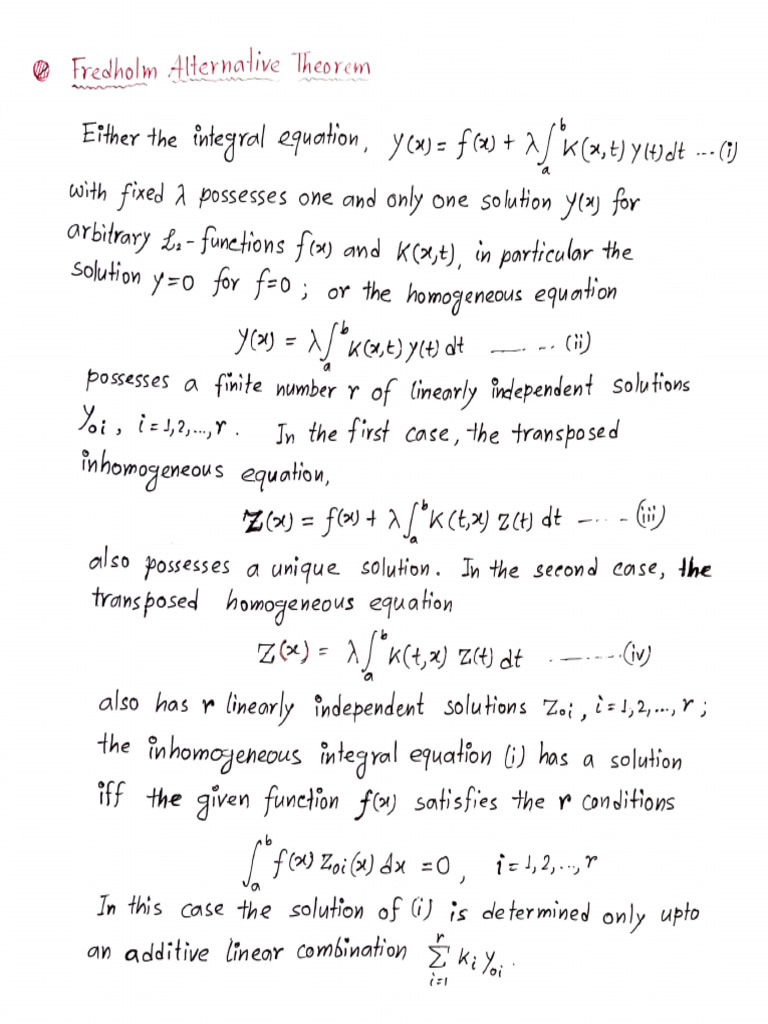 Fredholm Alternative Theorem
Either the integral equation, y(x) = f(x) + λ∫_a^b K(x,t) y(t) dt ... (i)
with fixed λ possesses one and only one solution y(x) for
arbitrary ℒ₂-functions f(x) and K(x,t), in particular the
solution y=0 for f=0 ; or the homogeneous equation
y(x) = λ∫_a^b K(x,t) y(t) dt ...... (ii)
possesses a finite number r of linearly independent solutions
y₀ᵢ , i = 1,2,...,r . In the first case, the transposed
inhomogeneous equation,
Z(x) = f(x) + λ∫_a^b K(t,x) Z(t) dt ..... (iii)
also possesses a unique solution. In the second case, the
transposed homogeneous equation
Z(x) = λ∫_a^b K(t,x) Z(t) dt ........ (iv)
also has r linearly independent solutions Z₀ᵢ , i = 1,2,...,r ;
the inhomogeneous integral equation (i) has a solution
iff the given function f(x) satisfies the r conditions
∫_a^b f(x) Z₀ᵢ(x) dx = 0 , i = 1,2,...,r
In this case the solution of (i) is determined only upto
an additive linear combination ∑_{i=1}^r kᵢ y₀ᵢ .